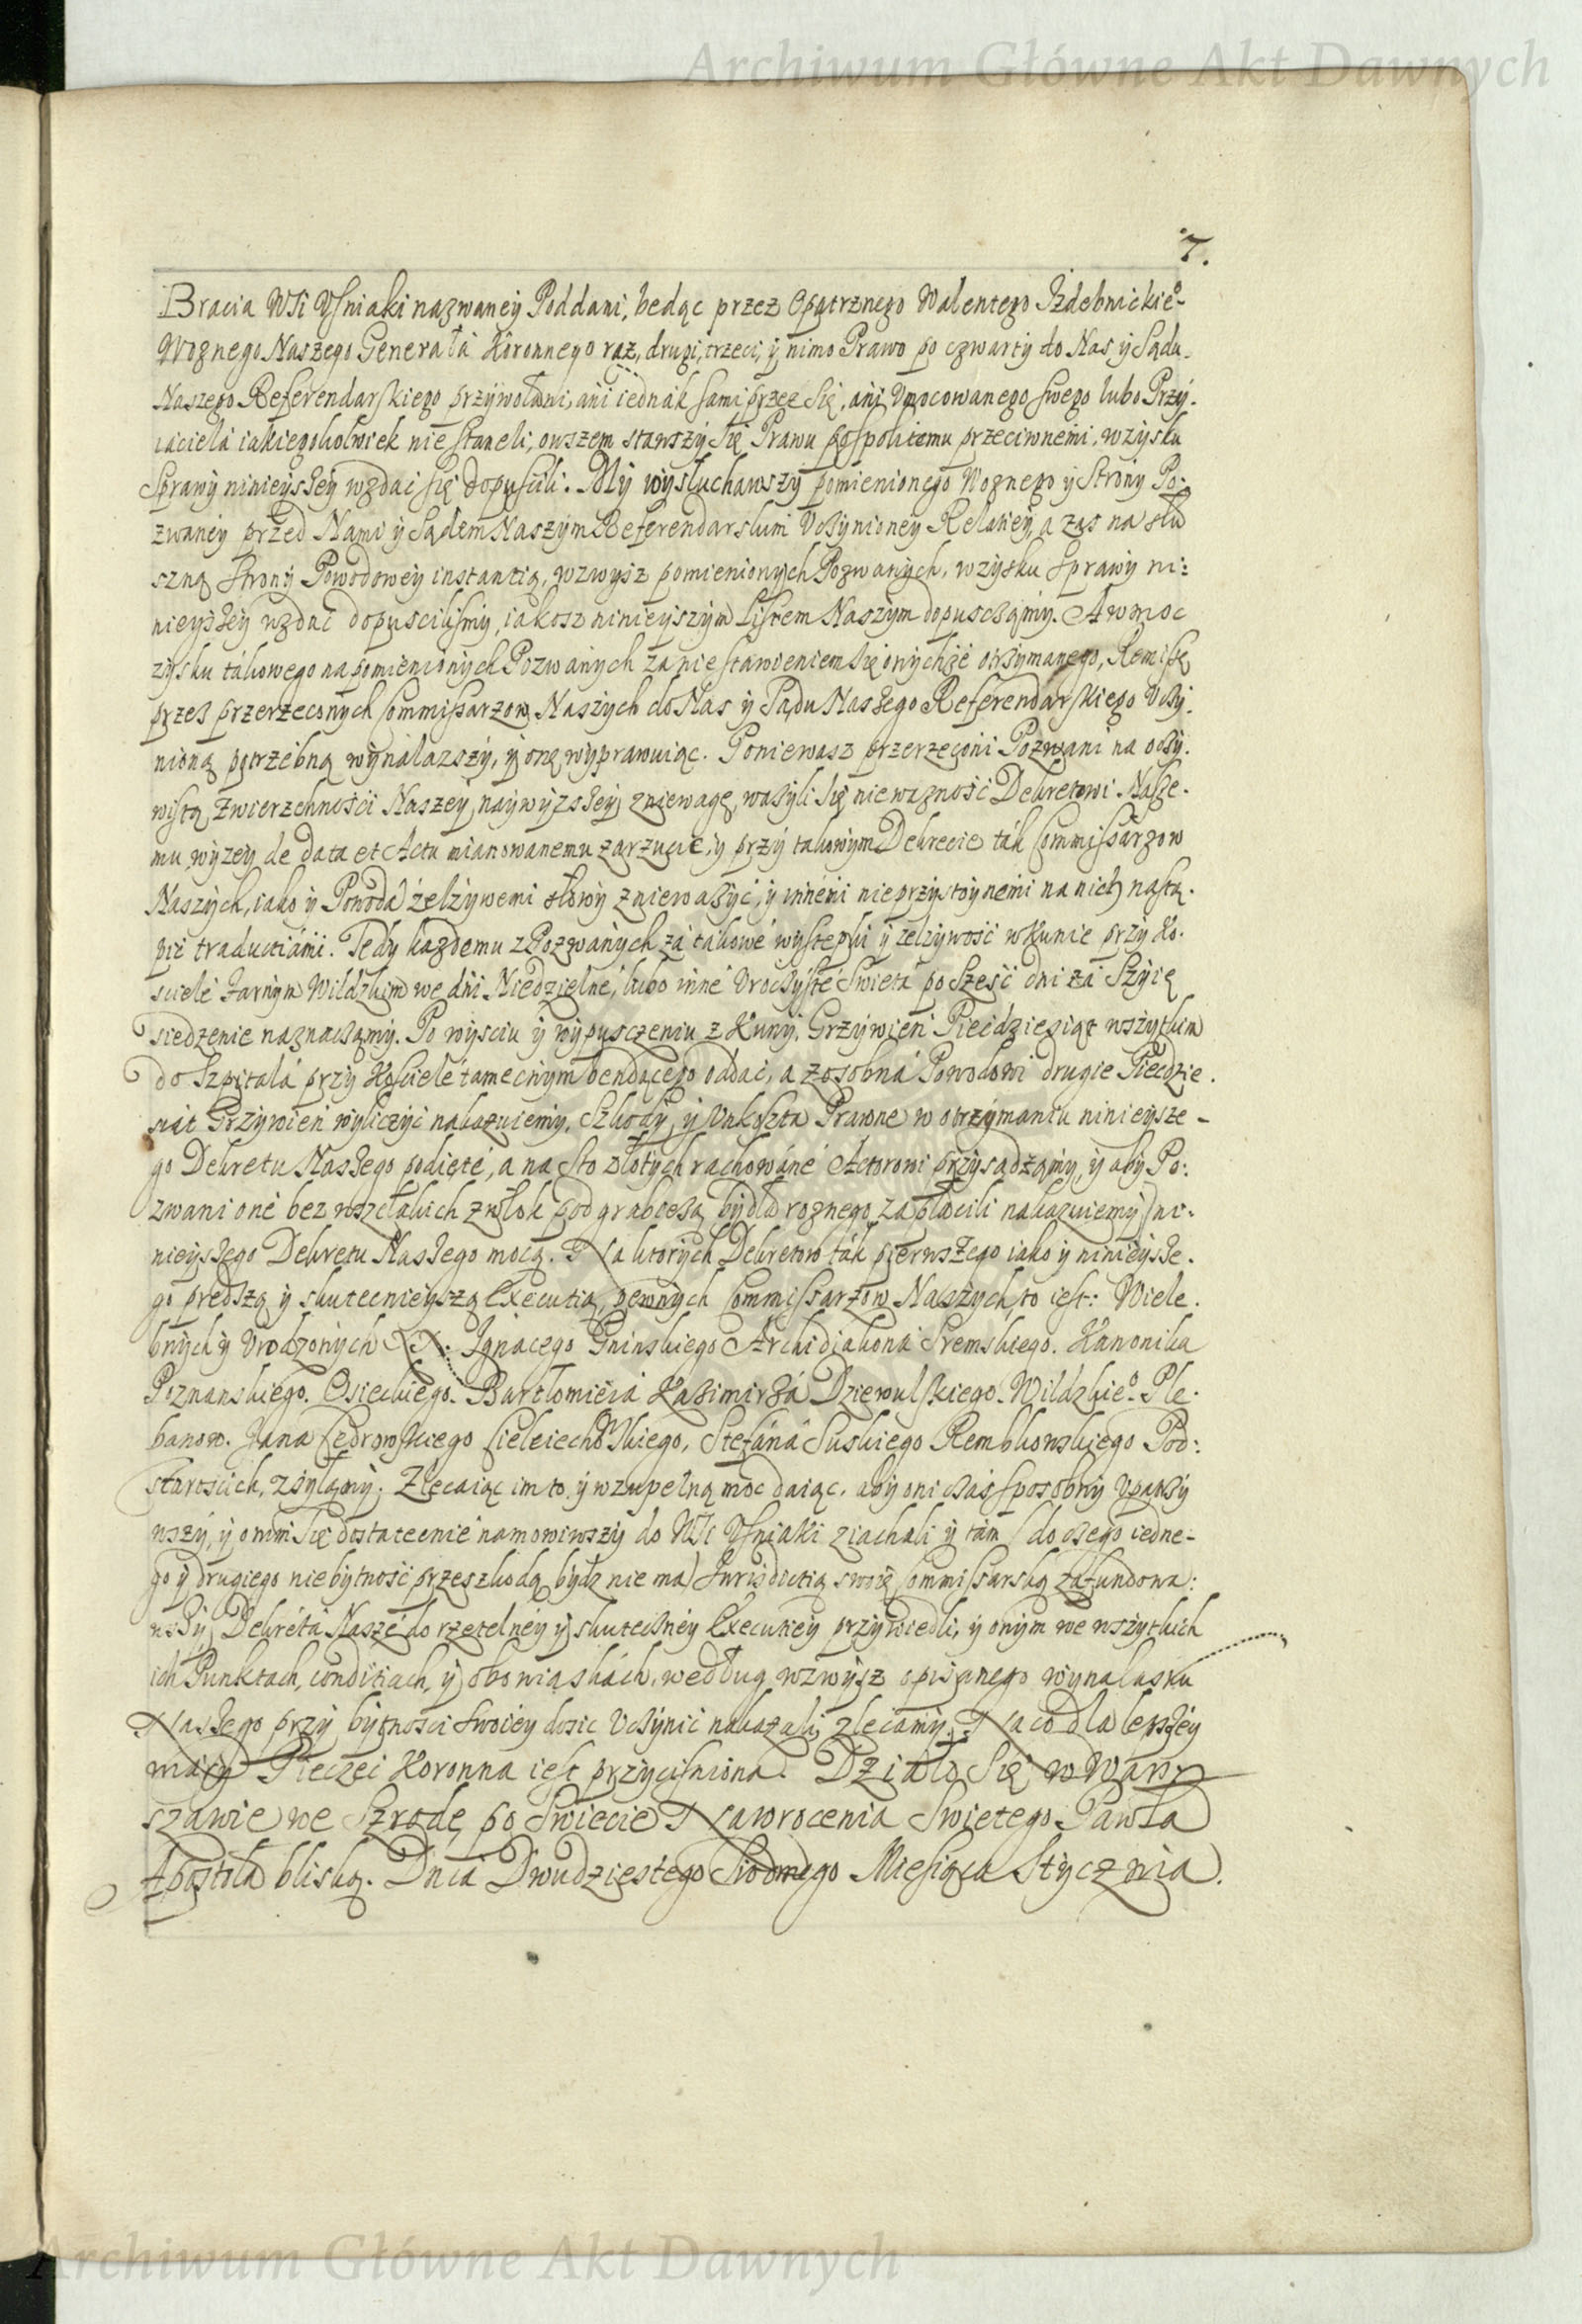 Archiwum Główne Akt Dawnych
7.
Bracia WSi Vsniaki nazwaney Poddani, bedąc przez Opatrznego Walentego Izdebnickieo
Woznego Naszego Generała Koronnego raz, drugi, trzeci, y nimo Prawo po czwarty do Nas y Sądu
Naszego Referendarskiego przywołani, ani iednak sami przez się, ani Vmocowanego swego lubo Przy-
iaciela iakiegokolwiek nie staneli, owszem stawszy się Prawu pospolitemu przeciwnemi, wzysku
Sprawy ninieyszey wzdać się dopuscili. My wysłuchawszy pomienionego Woznego y Strony Po-
zwaney przed Nami y Sądem Naszym Referendarskim Vczynioney Relatiey, a zas na słu
szną Strony Powodowey instantią, wzwysz pomienionych Pozwanych, wzysku Sprawy ni:
nieyszey wzdać dopuscilismy, iakosz ninieyszym Listem Naszym dopusczamy. A w moc
zysku takowego na pomienionych Pozwanych za nie stawieniem się onychże otrzymanego, Remissę
przez przerzeconych Commissarzow Naszych do Nas y Sądu Naszego Referendarskiego Vczy-
nioną potrzebną wynalazszy, y onę wyprawuiąc. Poniewasz przerzeczeni Pozwani na oczy-
wistą Zwierzchności Naszey naywyzszey zniewagę, ważyli się nieważność Dekretowi Nasze-
mu wyzey de data et Actu mianowanemu zarzucić, y przy takowym Dekrecie ták Commissarzow
Naszych, iako y Powoda zelżywemi słowy znieważyć, y innemi nieprzystoynemi na nich nastą-
pić traductiami. Tedy każdemu z Pozwanych za takowe wystepki y zelzywość w Kunie przy Ko-
sciele Farnym Wildzkim we dni Niedzielne, lubo inne Vroczyste Swieta po szesci dni za Szyię
siedzenie naznaczamy. Po wysciu y wypusczeniu z Kuny, Grzywien Piecdziesiąt wszytkim
do Szpitala przy Kosciele tamecznym bendącego oddać, a zosobna Powodowi drugie Piecdzie-
siąt Grzywien wyliczyć nakazuiemy. Szkody, y Vnkoszta Prawne w otrzymaniu ninieysze-
go Dekretu Naszego podięte, a na sto złotych rachowáne Actorowi przysądzamy, y aby Po:
zwani one bez wszelakich zwłok pod grabieżą bydła rognego zapłacili nakazuiemy ni-
nieyszego Dekretu Naszego mocą. Na ktorych Dekretow ták pierwszego iako y ninieysze-
go predszą y skutecznieyszą Executią, pewnych Commissarzow Naszych, to iest: Wiele-
bnych y Vrodzonych X: Ignacego Gninskiego Archidiakona Sremskiego. Kanonika
Poznanskiego. Osieckiego. Bartłomieia Kazimirza Dziewulskiego. Wildzkieo. Ple-
banow. Jana Cedrowskiego Cieleiechowskiego, Stefana Suskiego Rembkowskiego Pod:
starościch, zsyłamy. Zlecaiąc im to y wzupełną moc daiąc, aby oni czas sposobny Vpatrzy
wszy, y onym się dostatecznie namowiwszy do WSi Vsniaki ziachali y tám (do czego iedne-
go y drugiego niebytność przeszkodą bydz nie ma) Jurisdictią swoię Commissarską zafundowa:
wszy, Dekreta Nasze do rzetelney y skuteczney Executiey przywiedli, y onym we wszytkich
ich Punktach, conditiach, y obowiąskach, według wzwysz opisanego wynalasku
Naszego przy bytnosci swoiey dosic Vczynić nakazali, zlecamy. Na co dla lepszey
wiary Pieczeć Koronna iest przyciśniona. Działo się w Warr
szawie we Szrodę po Swiecie Nawrocenia Swietego Pawła
Apostoła bliską. Dnia Dwudziestego Siodmego Miesiąca Stycznia.
Archiwum Główne Akt Dawnych